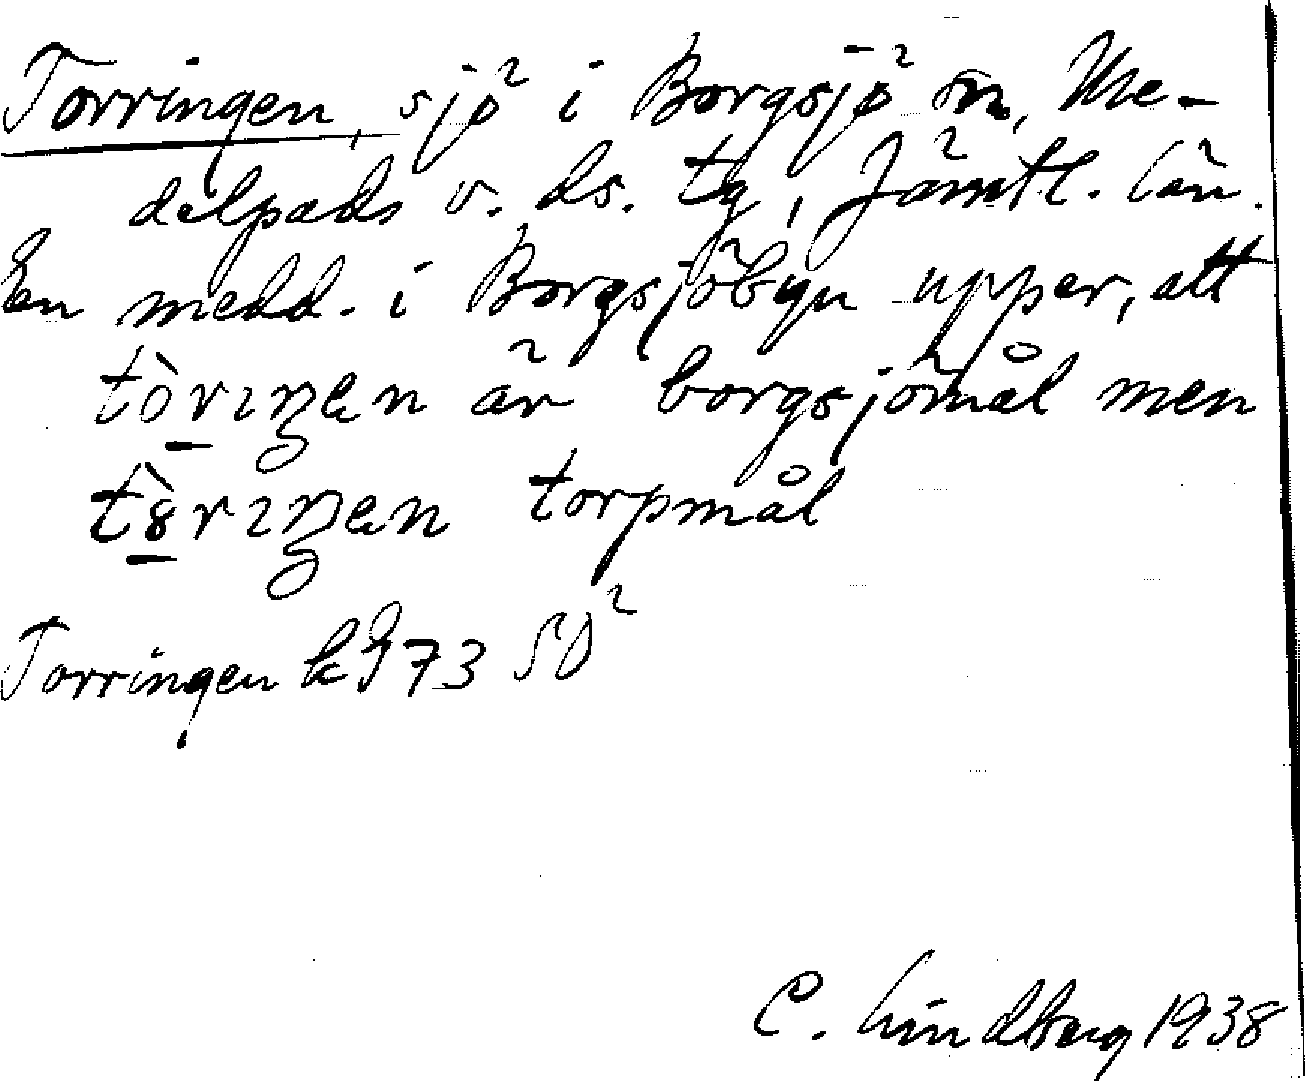 Torringen, sjö i Borgsjö sn, Me-
delpads v. ds. tg, Jämtl. län.
En medd. i Borgsjöbyn upper, att
tòrıŋen är borgsjömål men
tò̱rıŋen torpmål
Torringen k 973 SO
C. Lindberg 1938